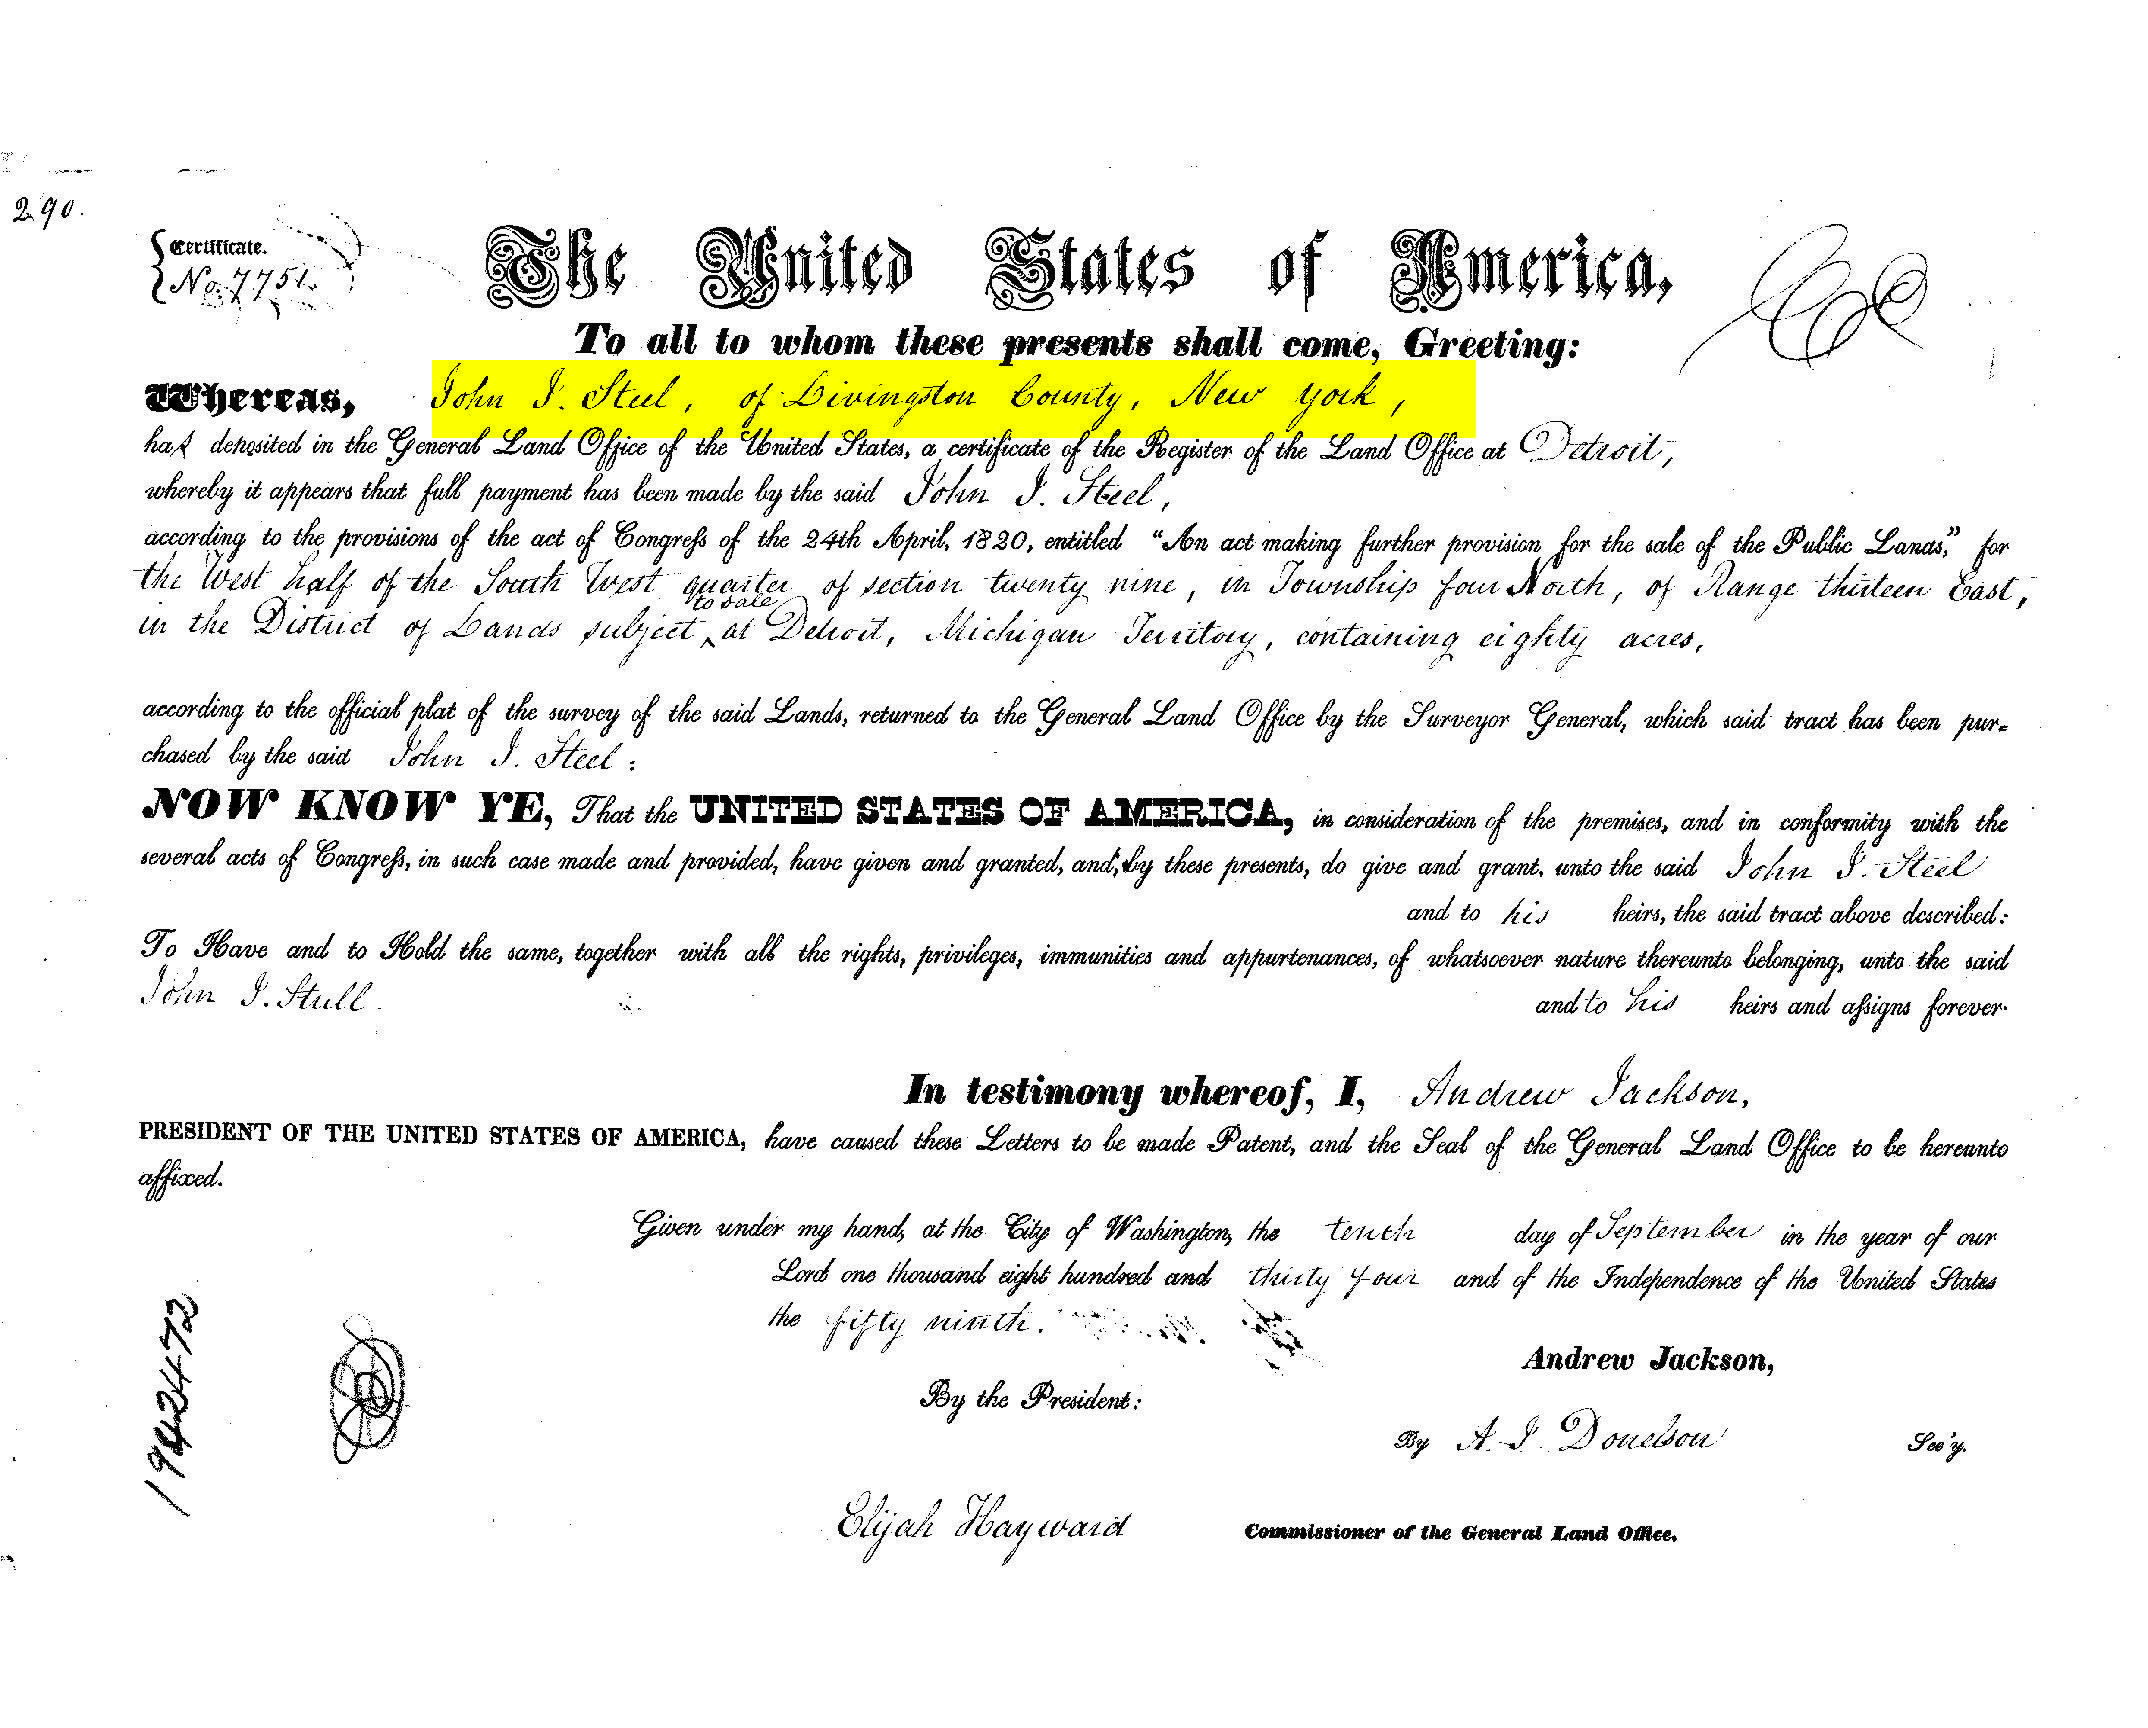 290.
Certificate.
No. 7751.
The United States of America,
To all to whom these presents shall come, Greeting:
Whereas, John J. Steel, of Livingston County, New York,
has deposited in the General Land Office of the United States, a certificate of the Register of the Land Office at Detroit,
whereby it appears that full payment has been made by the said John J. Steel,
according to the provisions of the act of Congress of the 24th April, 1820, entitled "An act making further provision for the sale of the Public Lands," for
the West half of the South West quarter of section twenty nine, in Township four North, of Range thirteen East,
to sale
in the District of Lands subject ‸ at Detroit, Michigan Territory, containing eighty acres,
according to the official plat of the survey of the said Lands, returned to the General Land Office by the Surveyor General, which said tract has been pur-
chased by the said John J. Steel:
NOW KNOW YE, That the UNITED STATES OF AMERICA, in consideration of the premises, and in conformity with the
several acts of Congress, in such case made and provided, have given and granted, and, by these presents, do give and grant, unto the said John J. Steel
and to his heirs, the said tract above described:
To Have and to Hold the same, together with all the rights, privileges, immunities and appurtenances, of whatsoever nature thereunto belonging, unto the said
John J. Stull and to his heirs and assigns forever.
In testimony whereof, I, Andrew Jackson,
PRESIDENT OF THE UNITED STATES OF AMERICA, have caused these Letters to be made Patent, and the Seal of the General Land Office to be hereunto
affixed.
Given under my hand, at the City of Washington, the tenth day of September in the year of our
Lord one thousand eight hundred and thirty four and of the Independence of the United States
the fifty ninth.
Andrew Jackson,
By the President:
By A. J. Donelson Sec'y.
Elijah Hayward Commissioner of the General Land Office.